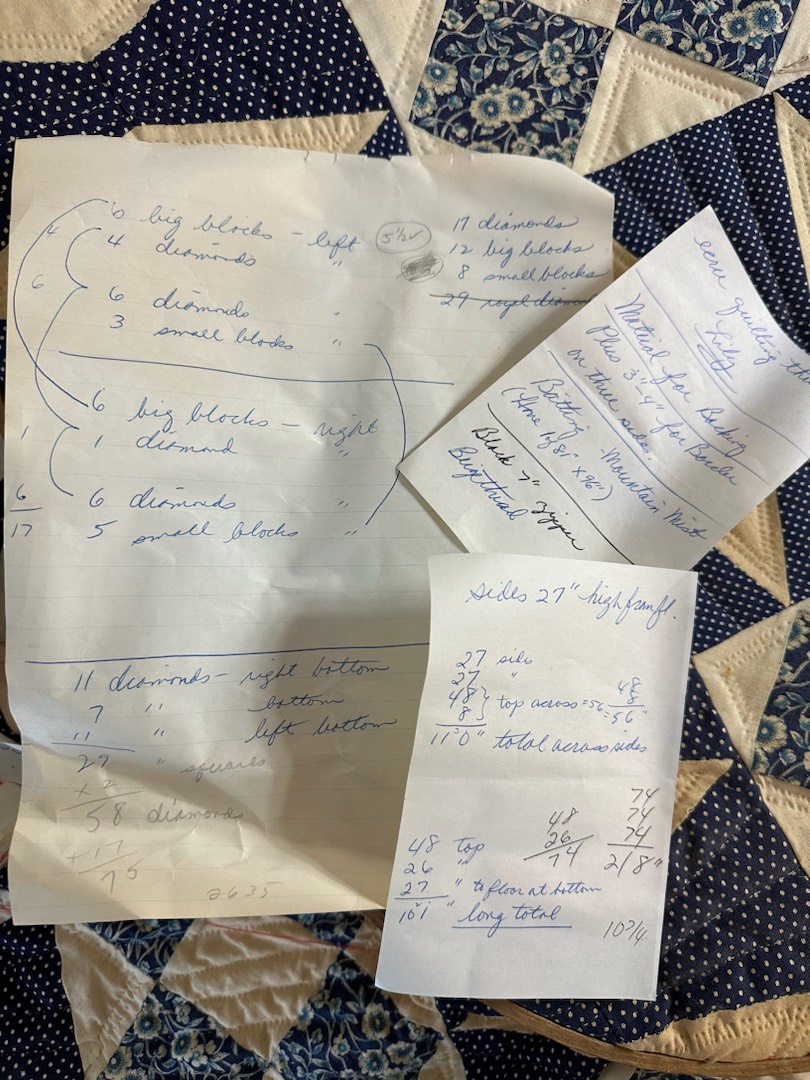 6 big blocks - left
4 4 diamonds "
5 1/2
6
6 diamonds "
3 small blocks "
6 big blocks - right
1 1 diamond "
6 6 diamonds "
17 5 small blocks "
17 diamonds
12 big blocks
8 small blocks
29 royal
11 diamonds - right bottom
7 " bottom
11 " left bottom
29 " squares
x 2
58 diamonds
+ 17
75
2635
ecru quilting
Lily
Matrial for Backing
Plus 3"-4" for Border
on three sides.
Batting Mountain Mist
(Have 1 of 81" x 96")
Black 7" zipper
Beige thread
sides 27" high from fl.
27 side
27 "
48
8 } top across = 56
48
8
56"
110" total across sides
48 top
26 "
27 " to floor at bottom
101" long total
48
26
74
74
74
74
218"
10 3/4